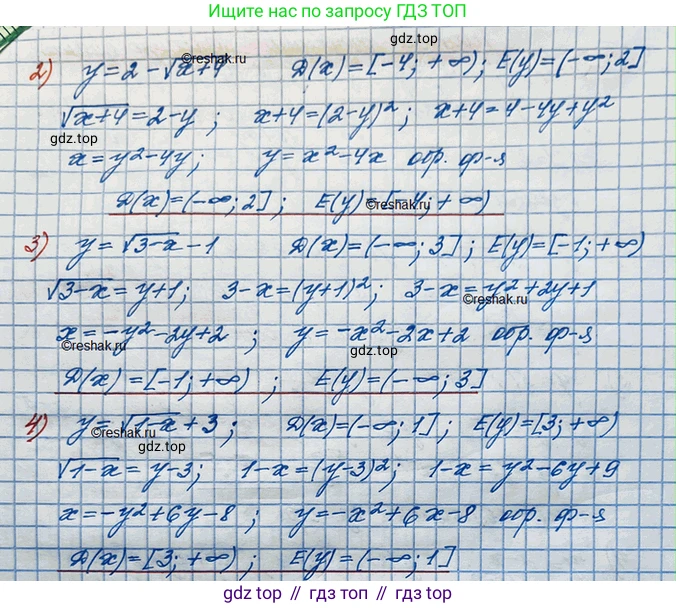 Ищите нас по запросу ГДЗ ТОП
gdz.top
2) y = 2 - √x+4 D(x) = [-4; +∞); E(y) = (-∞; 2]
©reshak.ru
√x+4 = 2-y ; x+4 = (2-y)²; x+4 = 4-4y+y²
gdz.top gdz.top
x = y²-4y; y = x²-4x обр. ф-я
D(x) = (-∞; 2] ; E(y) = [-4; +∞)
©reshak.ru
3) y = √3-x - 1 D(x) = (-∞; 3] ; E(y) = [-1; +∞)
√3-x = y+1; 3-x = (y+1)²; 3-x = y²+2y+1
©reshak.ru
x = -y²-2y+2 ; y = -x²-2x+2 обр. ф-я
©reshak.ru gdz.top
D(x) = [-1; +∞) ; E(y) = (-∞; 3]
4) y = √1-x + 3 ; D(x) = (-∞; 1] ; E(y) = [3; +∞)
©reshak.ru gdz.top
√1-x = y-3; 1-x = (y-3)²; 1-x = y²-6y+9
x = -y²+6y-8 ; y = -x²+6x-8 обр. ф-я
D(x) = [3; +∞) ; E(y) = (-∞; 1]
gdz.top // гдз топ // gdz.top